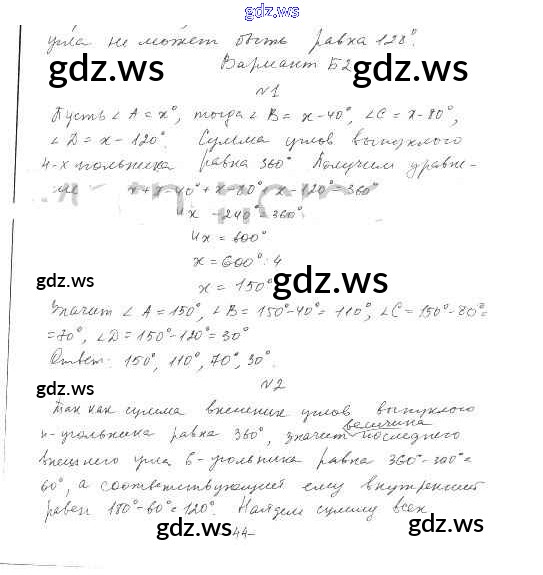 gdz.ws
угла не может быть равна 128°.
gdz.ws gdz.ws
Вариант Б2
№1
Пусть ∠A = x°, тогда ∠B = x-40°, ∠C = x-80°,
∠D = x-120°. Сумма углов выпуклого
4-х угольника равна 360° Получим уравне-
ние x+x-40°+x-80°+x-120°=360°
4x - 240°=360°
4x = 600°
x = 600°:4
gdz.ws gdz.ws
x = 150°
Значит ∠A=150°, ∠B= 150°-40°= 110°, ∠C=150°-80°=
=70°, ∠D=150°-120°=30°
Ответ: 150°, 110°, 70°, 30°.
gdz.ws gdz.ws
№2
Так как сумма внешних углов выпуклого
величина
n-угольника равна 360°, значит последнего
внешнего угла 6-угольника равна 360°-300°=
60°, а соответствующий ему внутренний
равен 180°-60°=120°. Найдем сумму всех
gdz.ws -44- gdz.ws